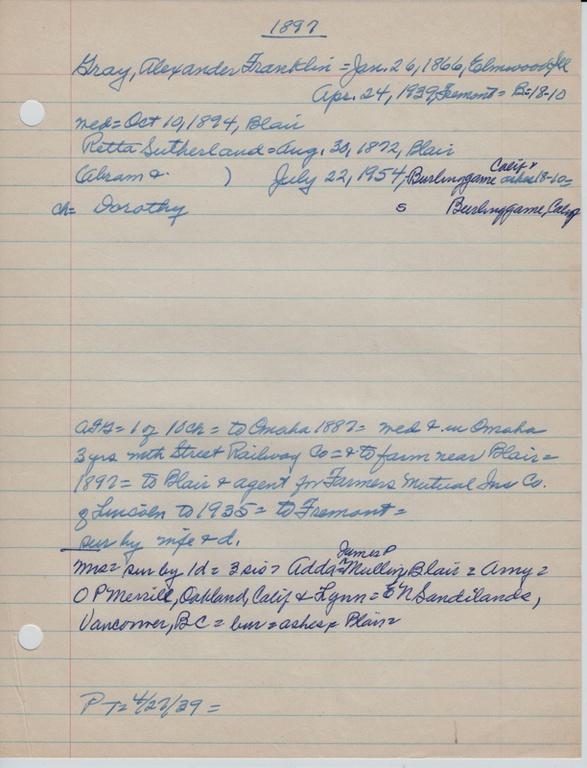 1897
Gray, Alexander Franklin = Jan. 26, 1866, Elmwood, Ill
Apr. 24, 1939, Fremont = B=18-10
med = Oct 10, 1894, Blair
Retta Sutherland = Aug. 30, 1872, Blair
(Abram & ) July 22, 1954, Burlinggame Calif & ashes 18-10=
ch = Dorothy s Burlinggame, Calif
AFG = 1 of 10 ch = to Omaha 1887 = med & in Omaha
3 yrs with Street Railway Co = & to farm near Blair =
1897 = to Blair & agent for Farmers Mutual Ins Co.
of Lincoln to 1935 = to Fremont =
sur by wife & d.
Mrs = sur by 1d = 3 sis = Adda = James P Mullen, Blair = Amy =
O P Merrill, Oakland, Calif & Lynn = E N Sandilands,
Vancouver, BC = bur = ashes = Blair =
P T = 4/27/39 =